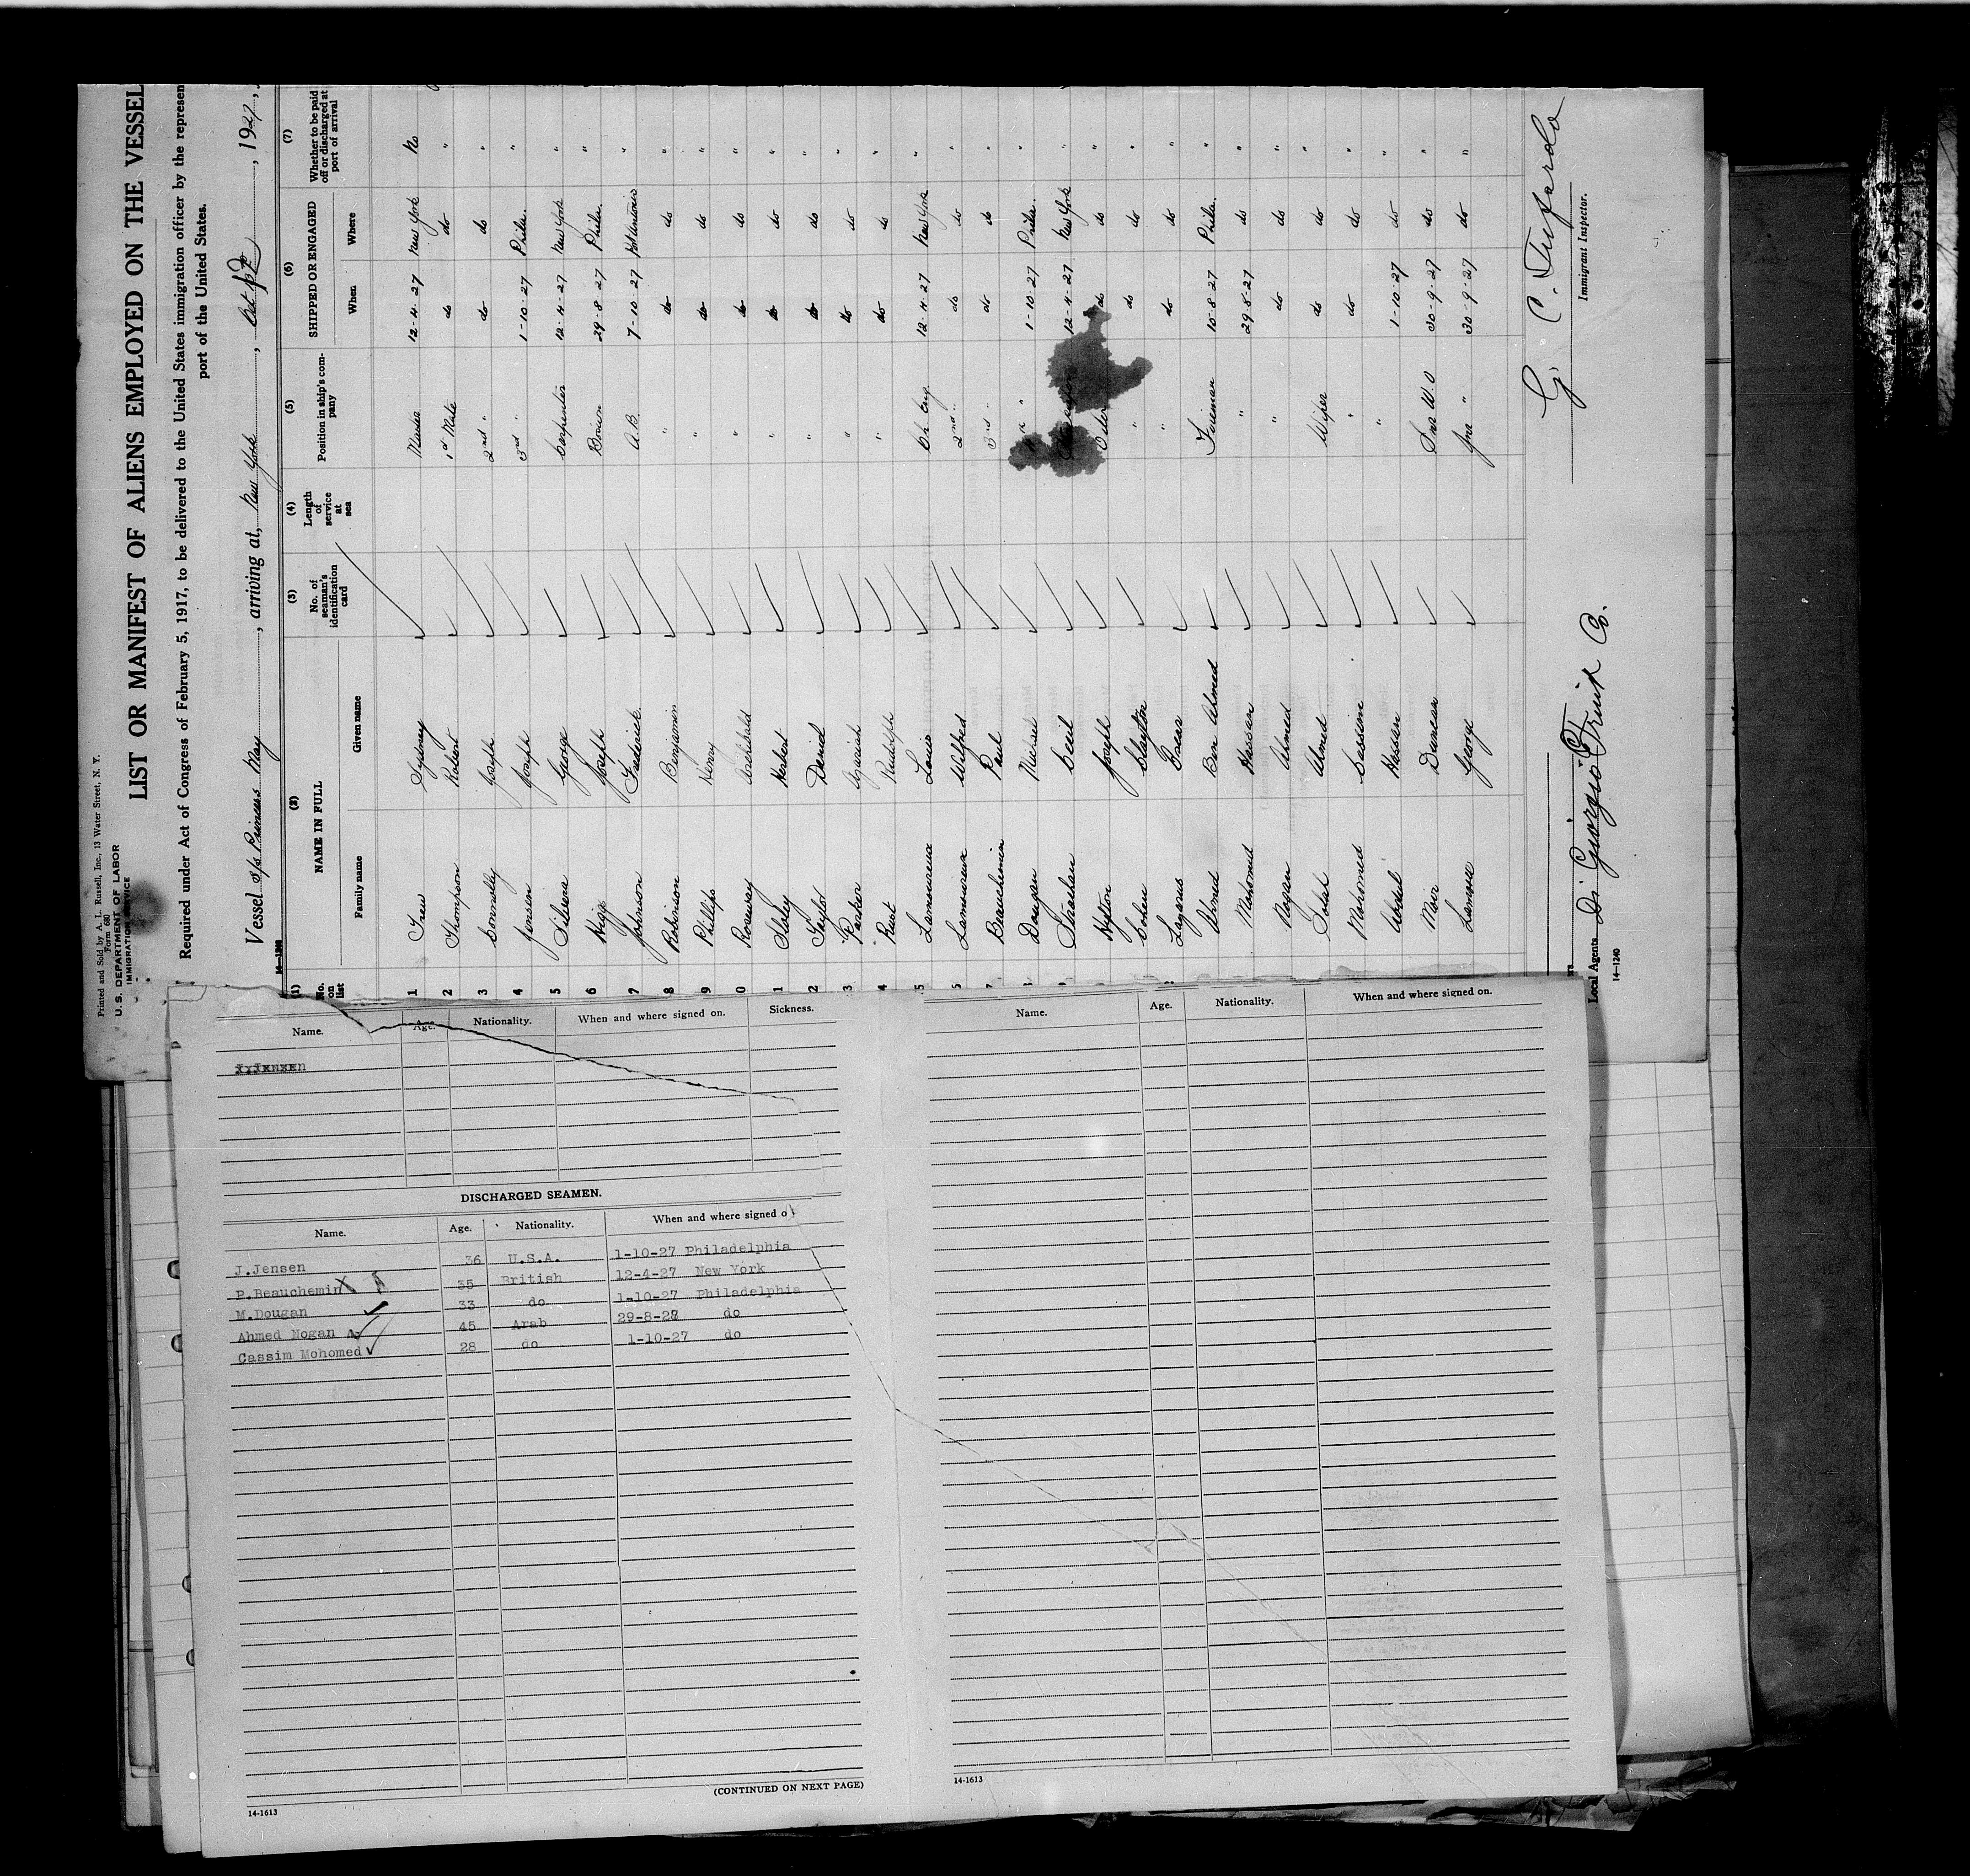 Printed and Sold by A. L. Russell, Inc., 13 Water Street, N. Y.
Form 680
U. S. DEPARTMENT OF LABOR
IMMIGRATION SERVICE
LIST OR MANIFEST OF ALIENS EMPLOYED ON THE VESSEL
Required under Act of Congress of February 5, 1917, to be delivered to the United States immigration officer by the represen
port of the United States.
Vessel s/s Princess May, arriving at, New York, Oct, 1927,
(1) (2) (3) (4) (5) (6) (7)
No. on list NAME IN FULL No. of seaman's identification card Length of service at sea Position in ship's company SHIPPED OR ENGAGED Whether to be paid off or discharged at port of arrival
Family name Given name When Where
1 Trew Sydney Master 12-4-27 New York No
2 Thompson Robert 1st Mate do do "
3 Connolly Joseph 2nd " do do "
4 Jensen Joseph 3rd " 1-10-27 Phila. "
5 Silvera George Carpenter 12-4-27 New York "
6 Higgs Joseph Bosun 29-8-27 Phila. "
7 Johnson Frederick A.B. 7-10-27 Pt Antonio "
8 Robinson Benjamin " do do "
9 Phillips Henry " do do "
0 Roseway Archibald " do do "
1 Sibley Herbert " do do "
2 Taylor David " do do "
3 Parker " do do "
4 Rudolph " do do "
5 Lamoureux Louis Ch. Eng. 12-4-27 New York "
6 Lamoureux Wilfred 2nd " do do "
7 Beauchemin Paul 3rd " do do "
Dougan Michael " 1-10-27 Phila. "
Strachan Cecil 12-4-27 New York "
Hylton Joseph Oiler do do "
Cohen Clayton " do do "
Lazarus Oscar " do do "
Ahmed Ben Ahmed Fireman 10-8-27 Phila. "
Mohomed Hassan " 29-8-27 do "
Nogan Ahmed " do do "
Ahmed Wiper do do "
Mohomed Cassim " do do "
Hassan " 1-10-27 do "
Moir Duncan Snr W.O 30-9-27 do "
George Jnr " 30-9-27 do "
Local Agents Di Giorgio Fruit Co.
14—1240
Immigrant Inspector.
Name. Age. Nationality. When and where signed on. Sickness.
DISCHARGED SEAMEN.
Name. Age. Nationality. When and where signed o
J.Jensen 36 U.S.A. 1-10-27 Philadelphia
P.Beauchemin 35 British 12-4-27 New York
M.Dougan 33 do 1-10-27 Philadelphia
Ahmed Nogan 45 Arab 29-8-27 do
Cassim Mohomed 28 do 1-10-27 do
(CONTINUED ON NEXT PAGE)
14-1613
Name. Age. Nationality. When and where signed on.
14-1613